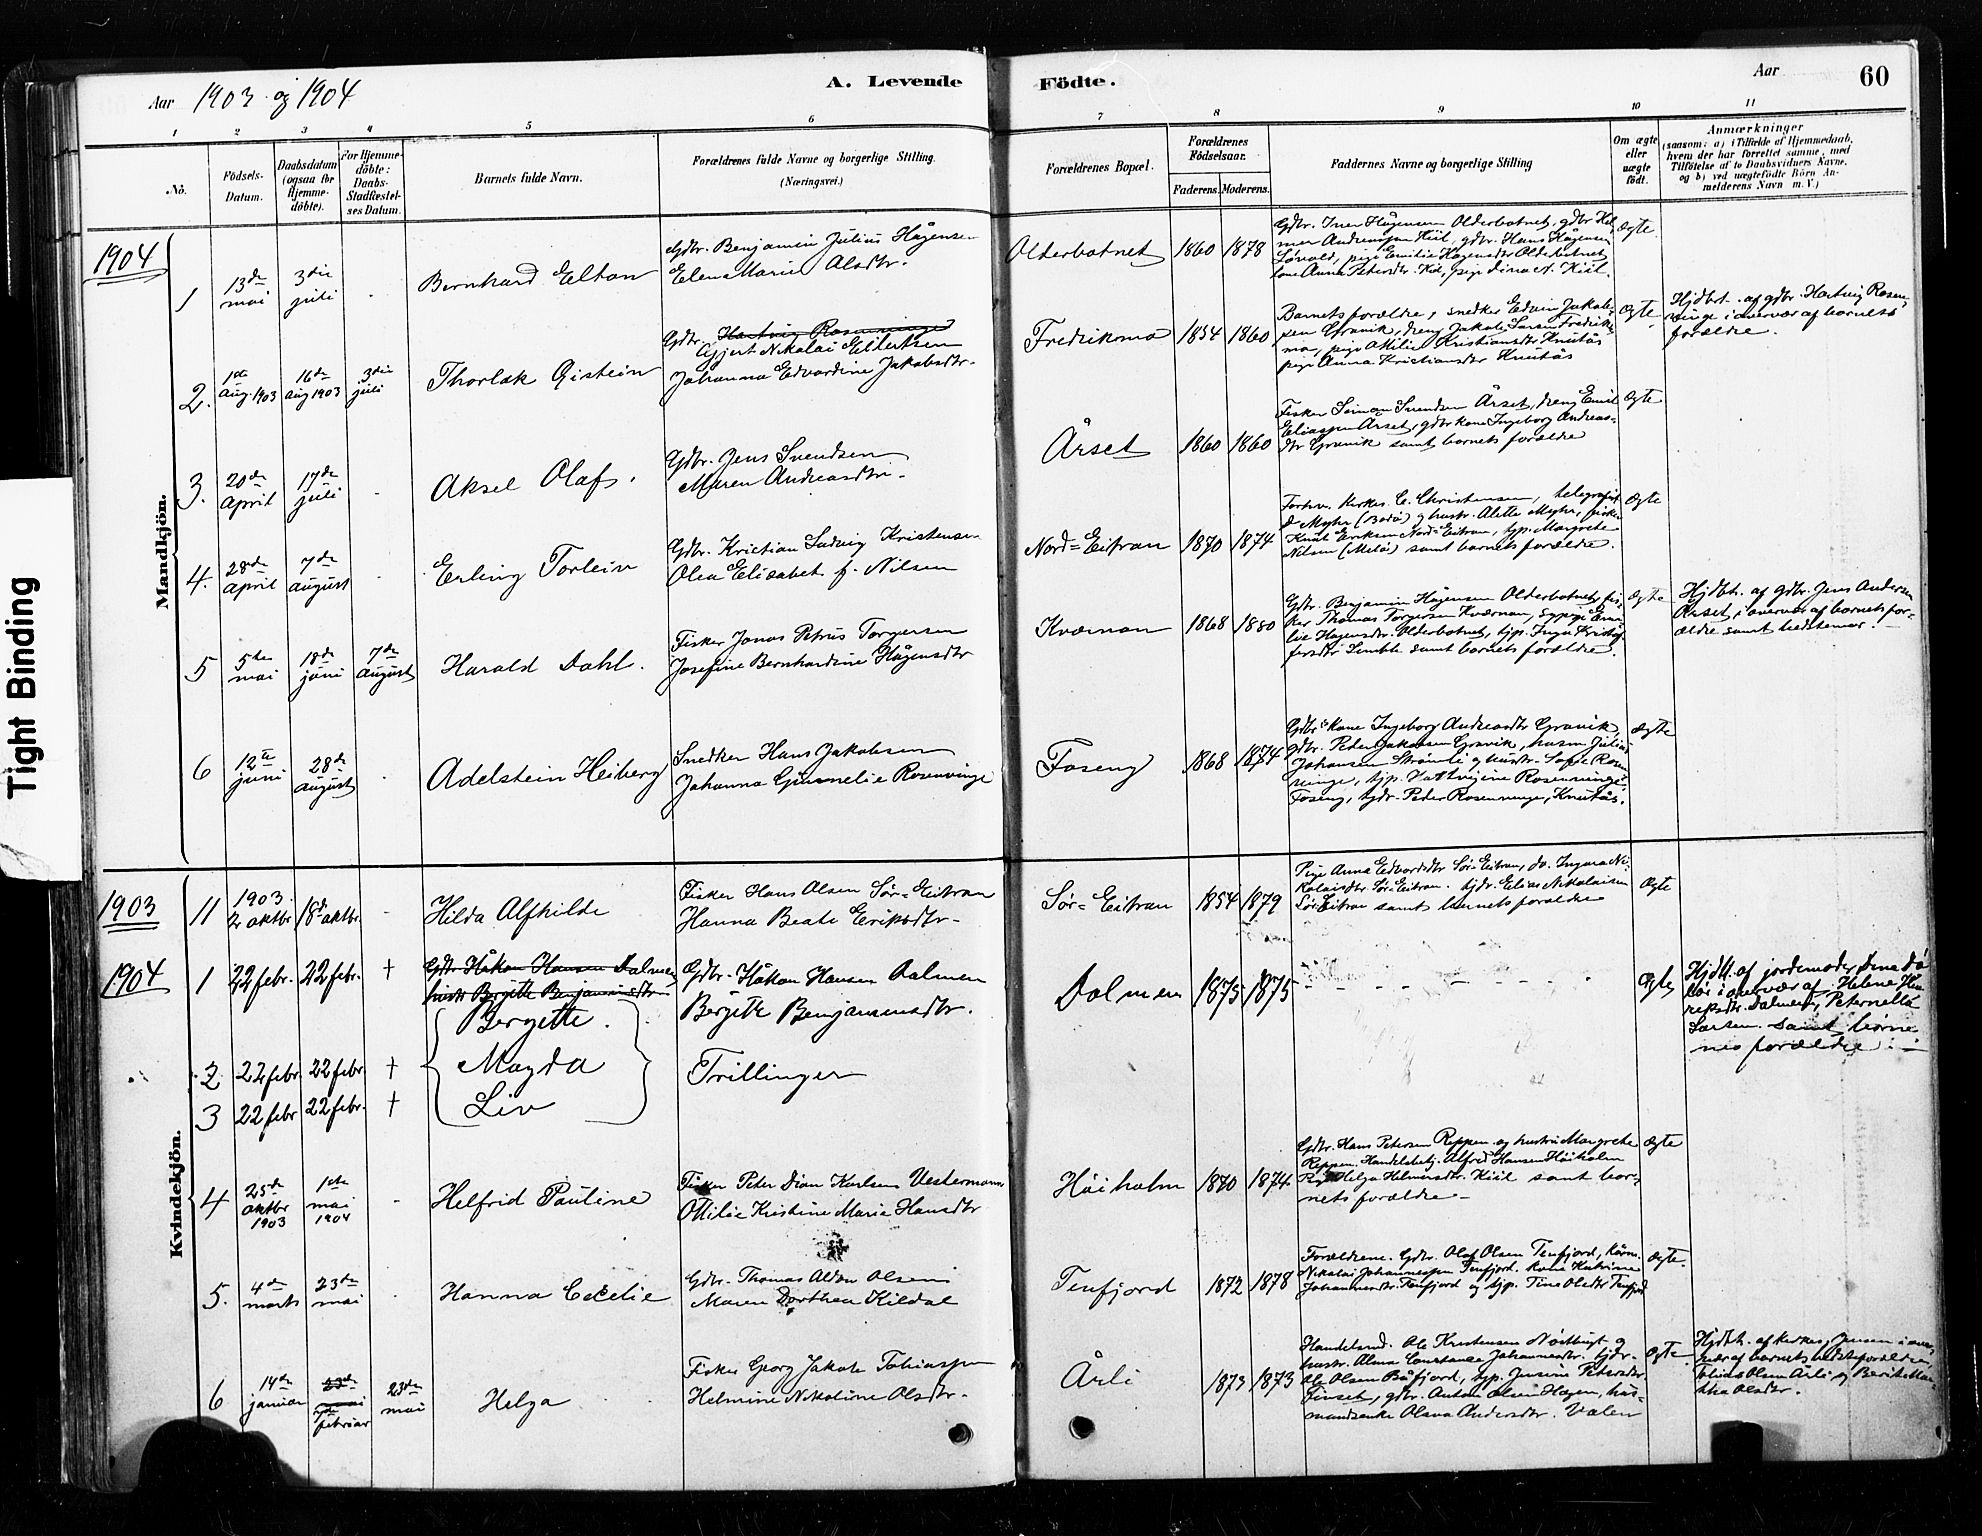 Aar 1903 og 1904
A. Levende
Födte.
Aar
60
1 2 3 4 5 6 7 8 9 10 11
No.
Födsels-
Datum.
Daabsdatum
(ogsaa for
Hjemme-
döbte).
For Hjemme-
döbte:
Daabs-
Stadfæstel-
ses Datum.
Barnets fulde Navn.
Forældrenes fulde Navne og borgerlige Stilling.
(Næringsvei.)
Forældrenes Bopæl.
Forældrenes
Födselsaar.
Faderens. Moderens.
Faddernes Navne og borgerlige Stilling
Om ægte
eller
uægte
født.
Anmærkninger
(saasom: a) i Tilfælde af Hjemmedaab,
hvem der har forrettet samme, med
Tilföielse af to Daabsvidners Navne,
og b) ved uægtefödte Börn An-
melderens Navn m. V.)
Mandkjön.
1904
1
13de
mai
3die
juli
Bernhard Elton
Gdbr. Benjamin Julius Hågensen
Elena Marie Olsdtr.
Olderbotnet
1860 1878
Gdbr. Iver Hågensen Olderbotnet, gdbr Hel-
mer Andreassen Kiil, gdbr. Hans Hågensen
Sörvold, pige Emilie Hågensdtr Olderbotnet
kone Anna Petersdtr. Kiil, pige Dina A. Kiil.
Ægte
2.
1ste
aug. 1903
16de
aug 1903
3die
juli
Thorlak Eistein
Gdbr. Hartvig Rosenvinge
Ejjert Nikolai Eilertsen
Johanna Edvardine Jakobsdtr.
Fredriksmo
1854 1860
Barnets forældre, snedker Edvin Jakob-
sen Gravik, dreng Jakob Larsen Fredriks-
mo, pige Otilie Kristiansdtr Knutås
pige Anna Kristiansdtr Knutås
Ægte
Hjdbt. af gdbr. Hartvig Rosen-
vinge i overvær af barnets
forældre.
3.
20de
april
17de
juli
Aksel Olaf.
Gdbr. Jens Svendsen
Maren Andreasdtr.
Årset
1860 1860
Fisker Simon Svendsen Årset, dreng Emil
Eliassen Årset, gdbr kone Ingeborg Andreas-
dtr Gravik samt barnets forældre
Ægte
4.
28de
april
7de
august
Erling Torleiv
Gdbr. Kristian Ludvig Kristensen
Olea Elisabet f. Nilsen
Nord=Eitran
1870 1874
Forhv. kirkes. C. Christensen, telegrafist
D Myhr (Bodö) og hustr. Alette Myhr, fisker
Knut Eriksen Nord=Eitran, tjp. Margrete
Nilsen (Melö) samt barnets forældre.
Ægte
5
5te
mai
18de
juni
7de
august
Harald Dahl.
Fisker Jonas Petrus Torgersen
Josefine Bernhardine Hågensdtr
Kværnan
1868 1880
Gdbr. Benjamin Hågensen Olderbotnet, fis-
ker Thomas Torgersen Kværnan, sypige Emi-
lie Hagensdtr. Olderbotnet, tjp. Inga Kristof-
fersdtr Semble samt barnets forældre.
Ægte
Hjdbt. af gdbr. Jens Andersen
Årset, i overvær af barnets for-
ældre samt bedstemor.
6
12te
juni
28de
august
Adelstein Heiberg
Snedker Hans Jakobsen
Johanna Gunnelie Rosenvinge
Foseng
1868 1874
Gdbr's kone Ingeborg Andreasdtr Gravik,
gdbr. Peder Jakobsen Gravik, husm Julius
Johansen Strömli og hustr. Sofie Rosen-
vinge, tjp. Hartvigine Rosenvinge,
Foseng, gdbr. Peder Rosenvinge, Knutås.
Ægte
Kvindekjön.
1903
11
1903.
2 oktbr
18de oktbr.
Hilda Alfhilde
Fisker Hans Olsen Sör=Eitran
Hanna Beate Eriksdtr.
Sör=Eitran
1854 1879
Pige Anna Edvardsdtr Sör-Eitran, do. Ingvara Ni-
kolaisdtr Sör-Eitran. tjdr. Elias Nikolaisen
Sör-Eitran samt barnets forældre
Ægte
1904
1
22 febr.
22 febr.
†
Gdbr. Håkon Hansen Dalmen
hustr Bergitte Benjaminsdtr
Bergette.
Gdbr. Håkon Hansen Dalmen
Bergitte Benjaminsdtr.
Dalmen
1875 1875
Ægte
Hjdbt. af jordemoder Dina Då-
löi i overvær af Helene Hen-
riksdtr. Dalmen, Peternelle
Larsen samt börne-
nes forældre.
2
22 febr
22 febr.
†
Magda
Trillinger
3
22 febr
22 febr.
†
Liv
4
25de
oktbr
1903
1ste
mai
1904
Helfrid Pauline
Fisker Peter Dian Karlsen Vestermann
Otilie Kristine Marie Hansdtr
Höiholm
1870 1874
Gdbr. Hans Petersen Reppen og hustru Margrete
Reppen. Handelsbetj. Alfred Hansen Höiholm
Pige Helga Helmersdtr. Kiil samt bar-
nets forældre
Ægte
5.
4de
marts
23de
mai
Hanna Cecelie
Gdbr. Thomas Aldon Olsen
Maren Dorthea Kildal
Tenfjord
1872 1878
Forældrene. Gdbr. Olaf Olsen Tenfjord, Kårm.
Nikolai Johannessen Tenfjord. kone Katrine
Johannesdtr. Tenfjord og tjp. Tina Olsdtr Tenfjord
Ægte.
6
14de
januar
23de
mai
7de
februar
23de
mai
Helga
Fisker Georg Jakob Tobiassen
Helmine Nikoline Olsdtr.
Årli
1873 1873
Handelsmd. Ole Kristensen Nöstbugt og
hustr. Alma Constance Johannesdtr. tjdr.
Ole Olsen Båfjord, tjp. Jensine Petersdtr
Finset, gdbr. Anton Olsen Hagen, hus-
mandsenke Olava Andersdtr. Valen
Ægte.
Hjdbt. af kirkes. Jensen i over-
vær af barnets bedsteforældre,
Tobias Olsen Årli og Berit Mar-
tha Olsdtr.
Tight Binding